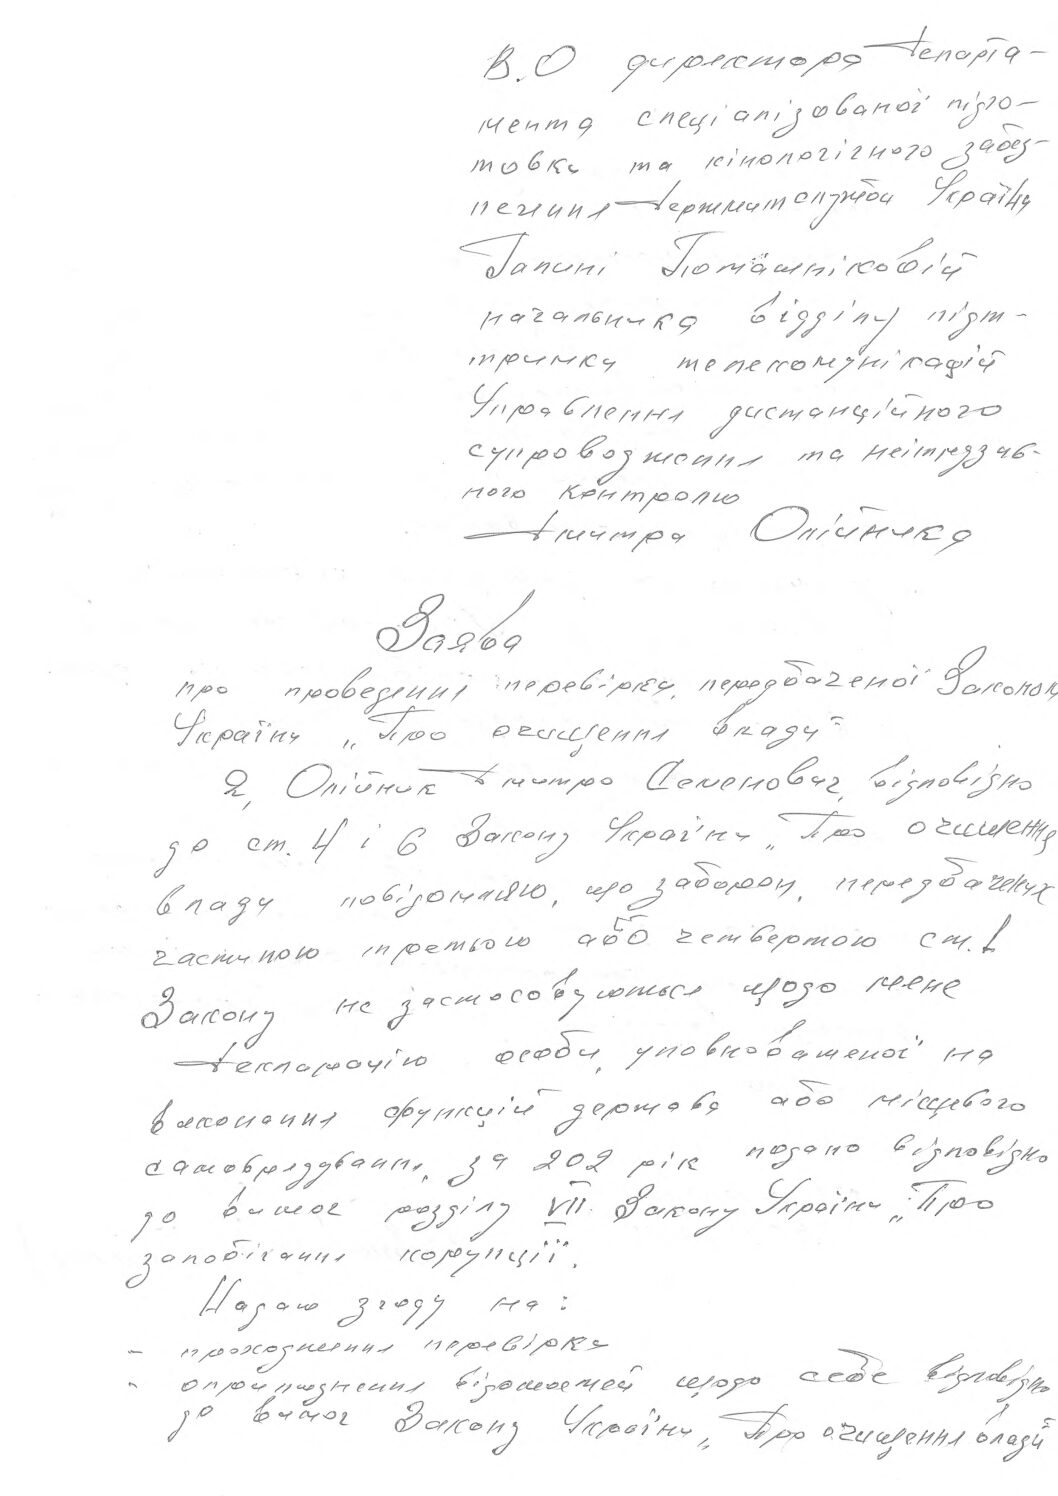 В.О директора Департа-
мента спеціалізованої підго-
товки та кінологічного забез-
печення Держмитслужби України
Галині Поташніковій
начальника відділу підт-
тримки телекомунікацій
Управління дистанційного
супроводження та
ного контролю
Дмитра Олійника
Заява
про проведення перевірки, передбаченої Законом
України „Про очищення влади"
Я, Олійник Дмитро Семенович, відповідно
до ст. 4 і 6 Закону України „Про очищення
влади повідомляю, що заборони, передбачених
частиною третьою або четвертою ст. 1
Закону не застосовуються щодо мене
Декларацію особи, уповноваженої на
виконання функцій держава або місцевого
самоврядування, за 202 рік подано відповідно
до вимог розділу VII Закону України „Про
запобігання корупції".
Надаю згоду на:
- проходження перевірки
- оприлюднення відомостей щодо себе відповідно
до вимог Закону України „Про очищення влади"